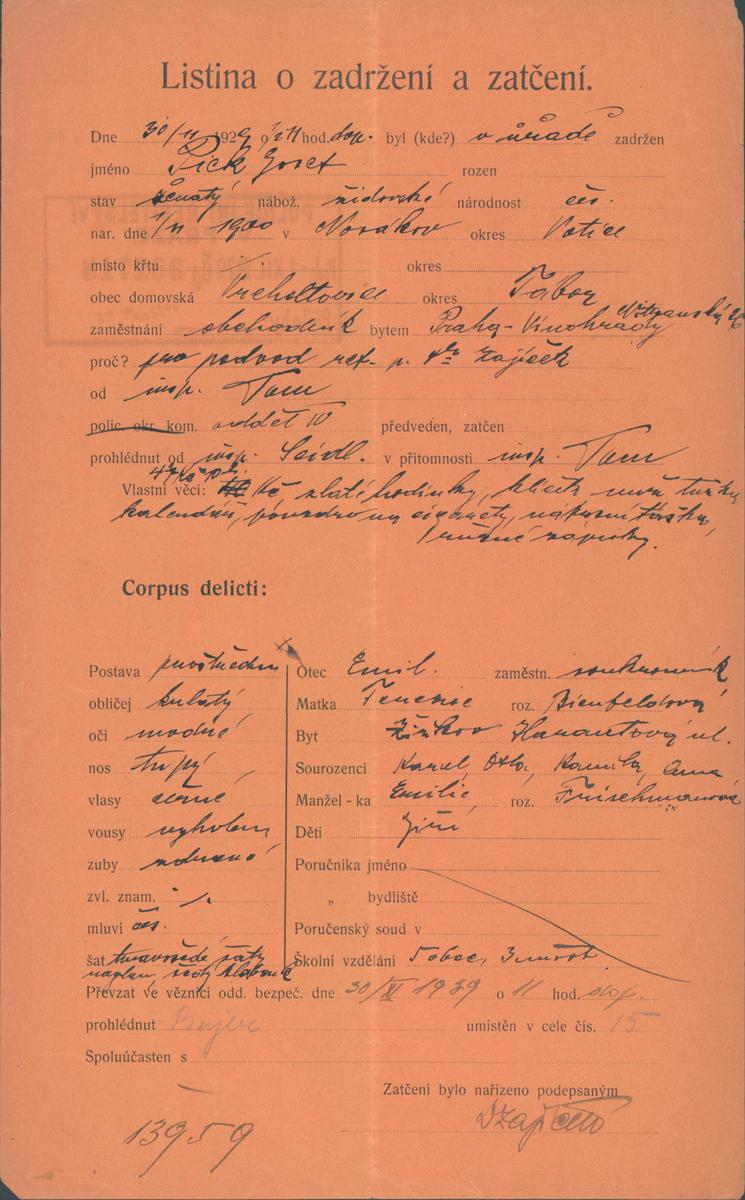 Listina o zadržení a zatčení.
Dne 30/11 1929 o 1/2 11 hod. dop. byl (kde?) v úřadě zadržen
jméno Pick Josef rozen
stav ženatý nábož. židovské národnost čes.
nar. dne 1/11 1900 v Nosákov okres Votice
místo křtu ./. okres
obec domovská Vrchotovice okres Tábor
zaměstnání obchodník bytem Praha-Vinohrady
proč? pro podvod ref. p. Dr Zajíček
od insp. Tom
polic. okr. kom. odděl IV předveden, zatčen
prohlédnut od insp. Seidl. v přítomnosti insp. Tom
Vlastní věci: Kč, zlaté hodinky, klíče, nůž, tužku
kalendář, pouzdro na cigarety, nákupní tašku,
různé zápisky.
Corpus delicti:
Postava prostřední Otec Emil. zaměstn. soukromník
obličej kulatý Matka Terezie roz. Bienfeldová
oči modré Byt Žižkov Harantova ul.
nos tupý Sourozenci Karel, Otto, Kamila, Anna
vlasy černé Manžel-ka Emilie, roz. Frischmanová
vousy vyholen Děti Jiří
zuby zdravé Poručníka jméno
zvl. znam. ./. „ bydliště
mluví čes. Poručenský soud v
šat tmavošedé šaty Školní vzdělání 5 obec, 3 měšť.
Převzat ve věznici odd. bezpeč. dne 30/XI 1929 o 11 hod. dop.
prohlédnut umístěn v cele čís. 15
Spoluúčasten s
Zatčení bylo nařízeno podepsaným
13959